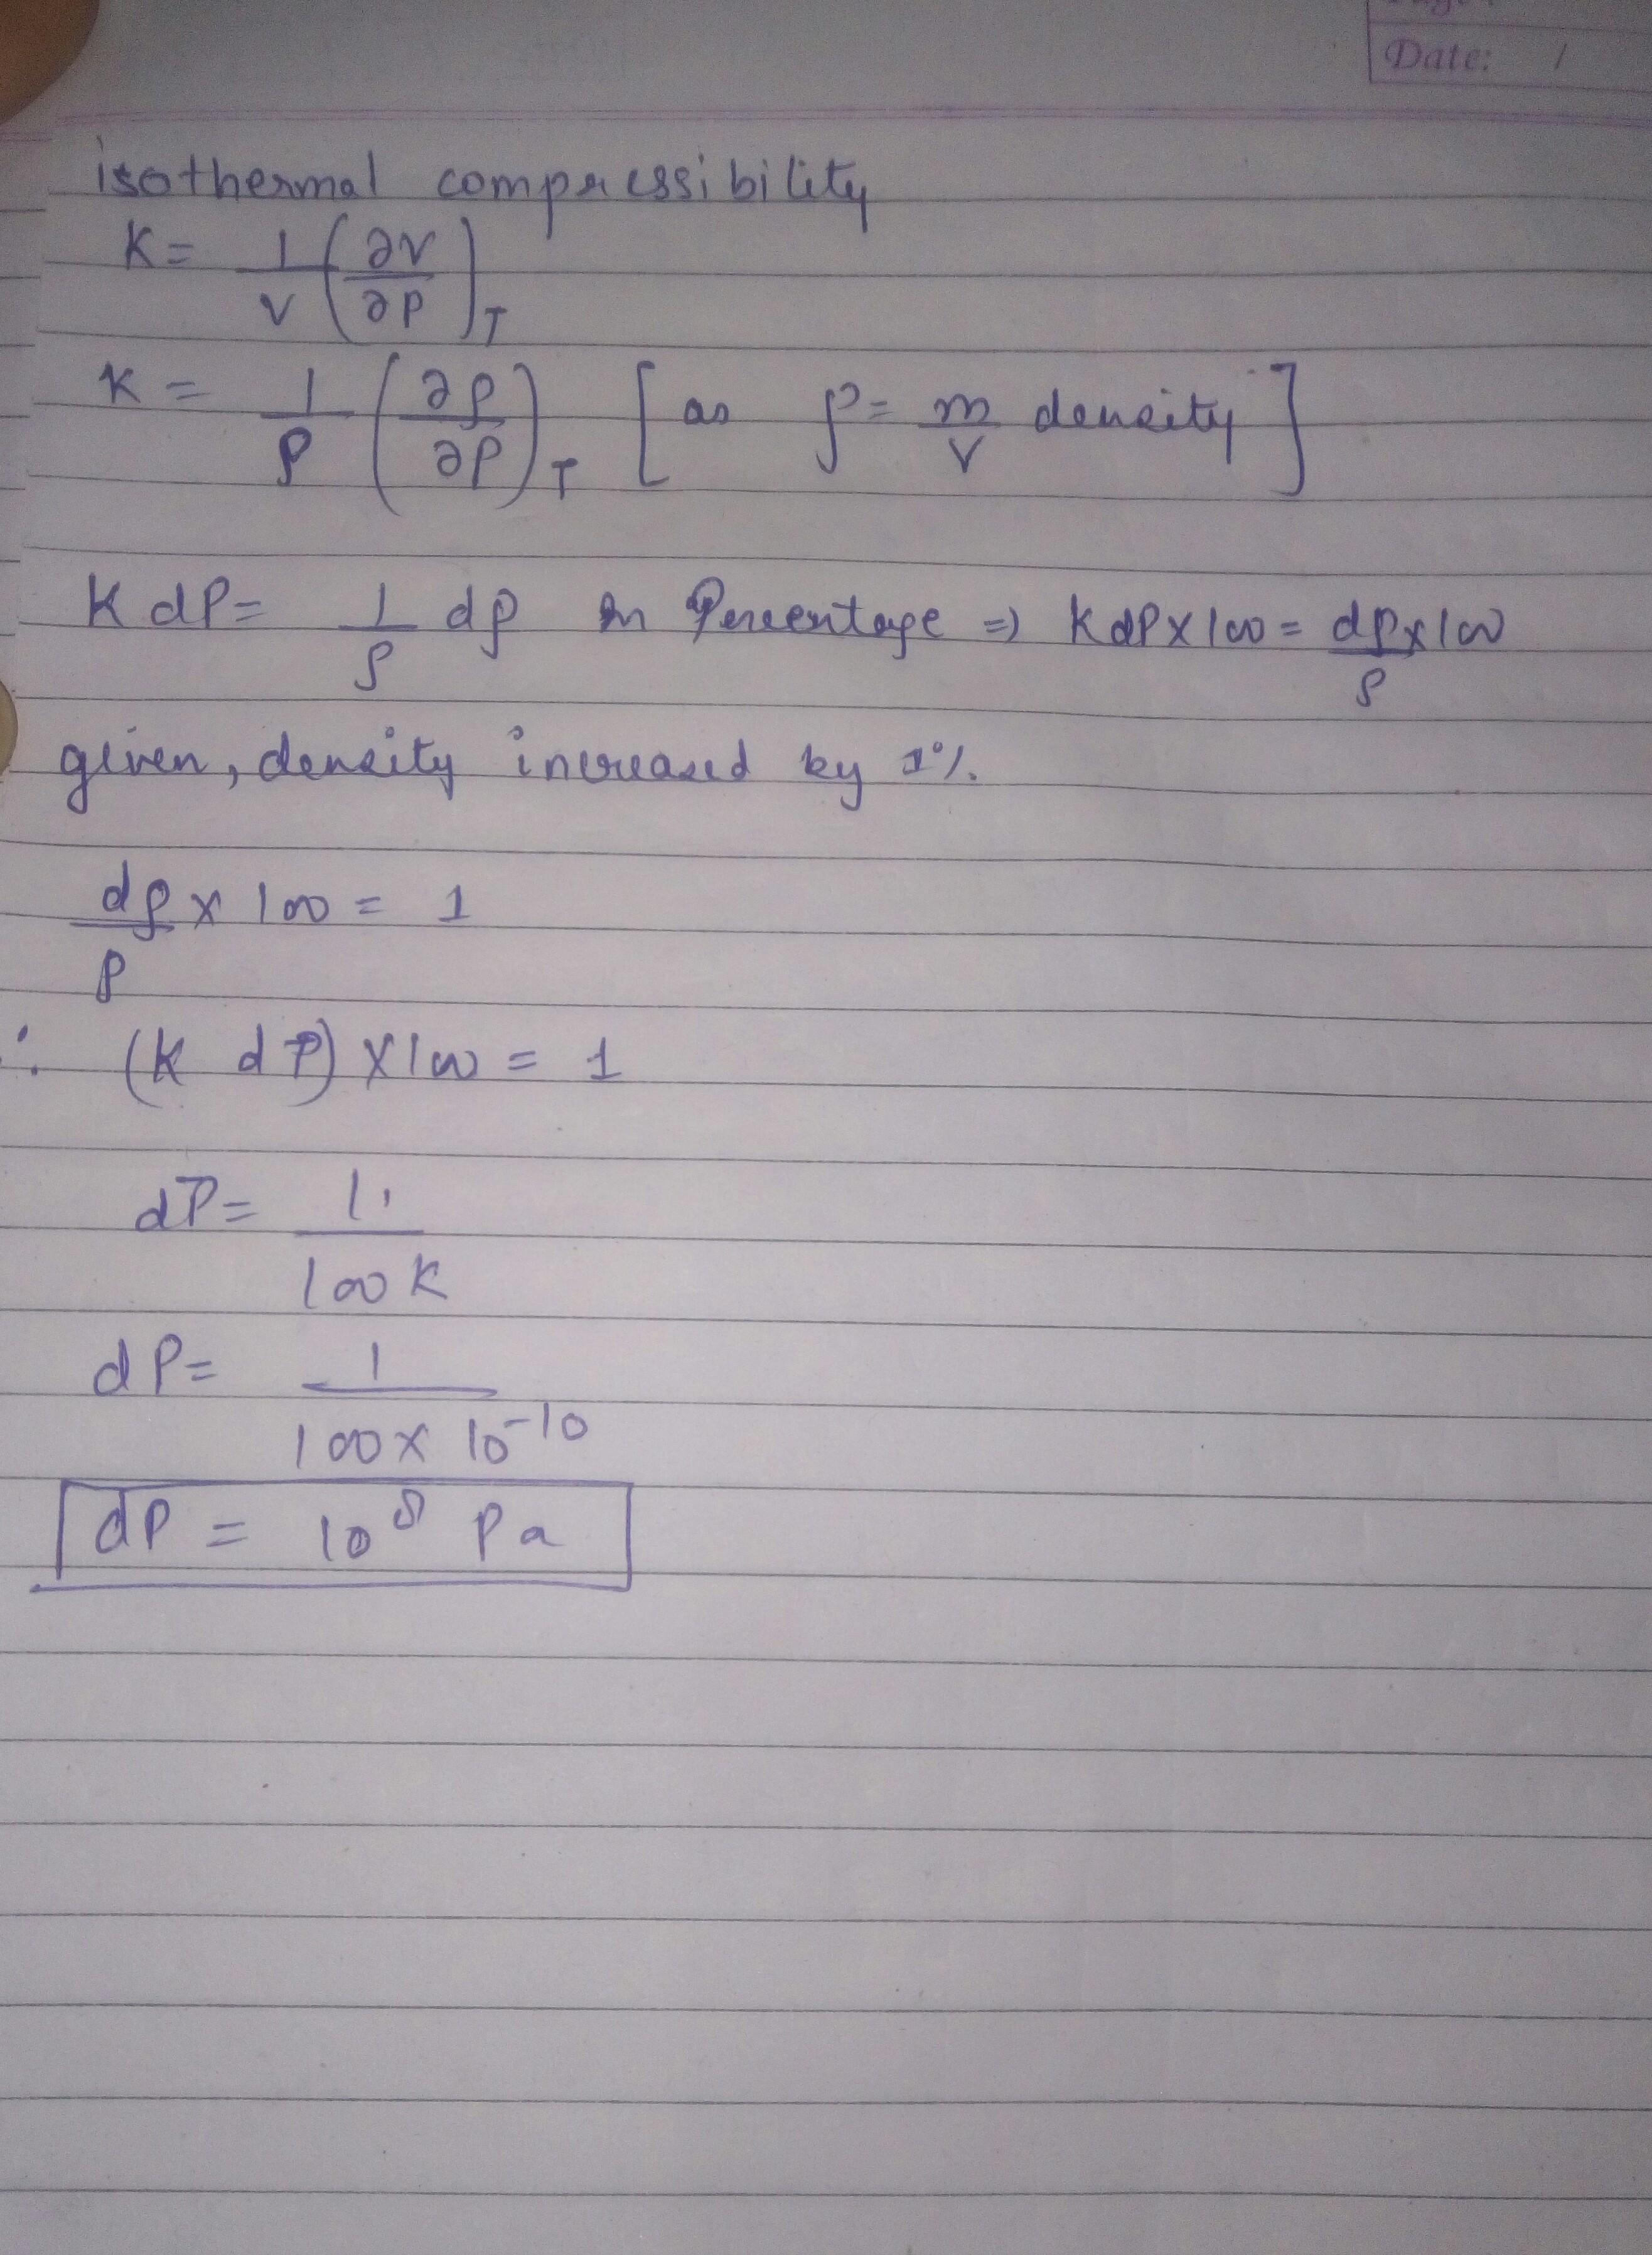 Date: /
isothermal compressibility
K = 1/V (∂V/∂P)_T
K = 1/ρ (∂ρ/∂P)_T [as ρ = m/V density]
K dP = 1/ρ dρ in Percentage ⇒ K dP x 100 = dρ/ρ x 100
given, density increased by 1%.
dρ/ρ x 100 = 1
∴ (K dP) x 100 = 1
dP = 1/100 K
dP = 1/100 x 10^-10
dP = 10^8 Pa